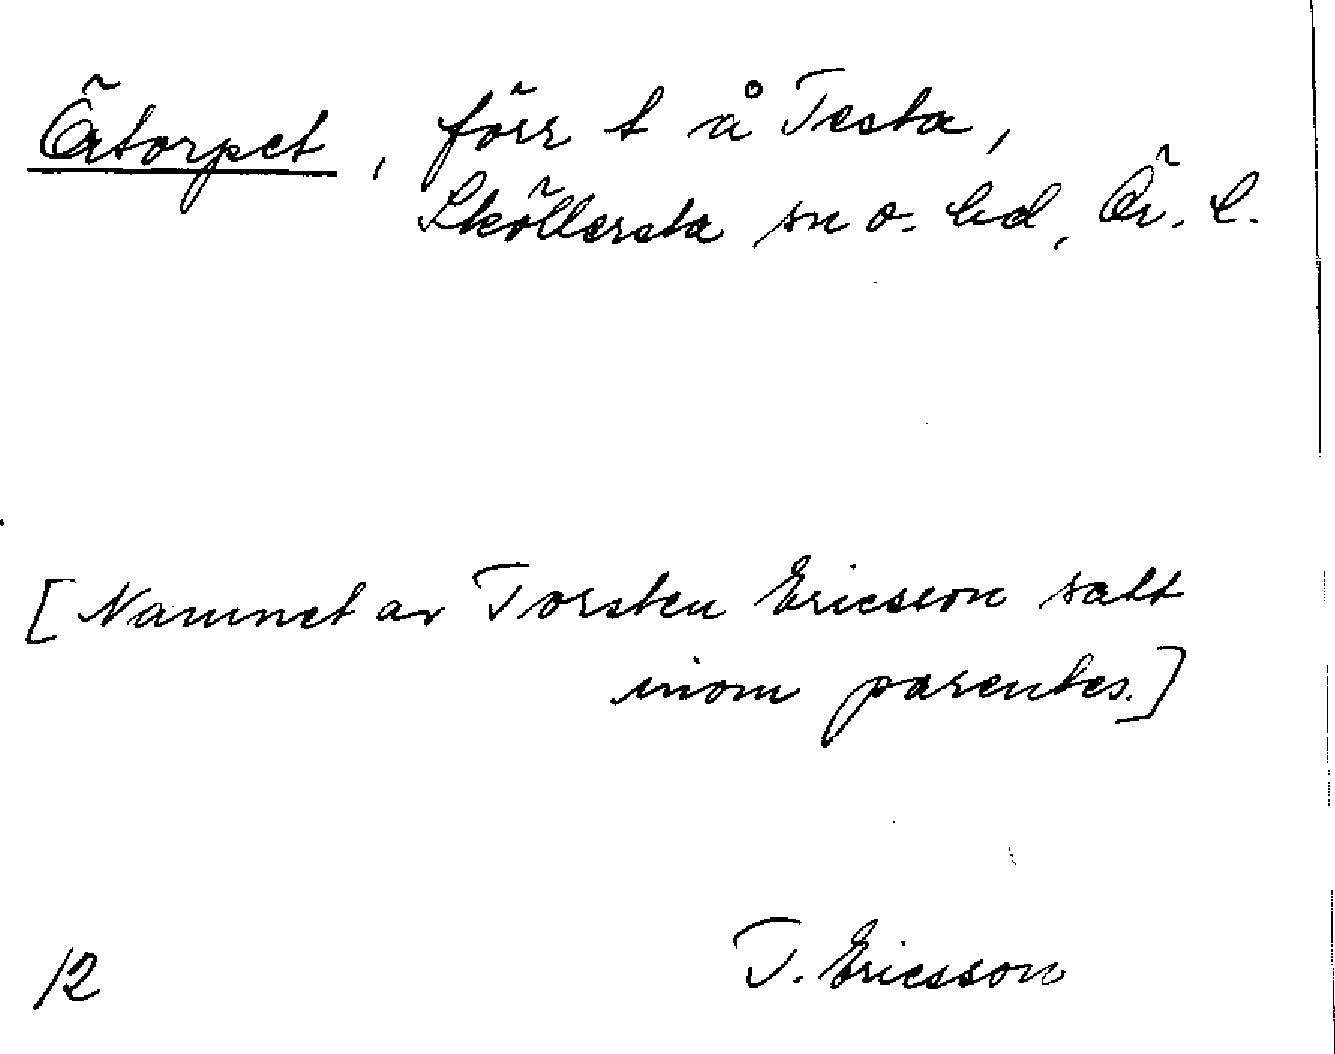 Örtorpet, förr t å Testa,
Sköllersta sn o. hd, Ör. l.
[Namnet av Torsten Ericsson satt
inom parentes.]
12 T. Ericsson